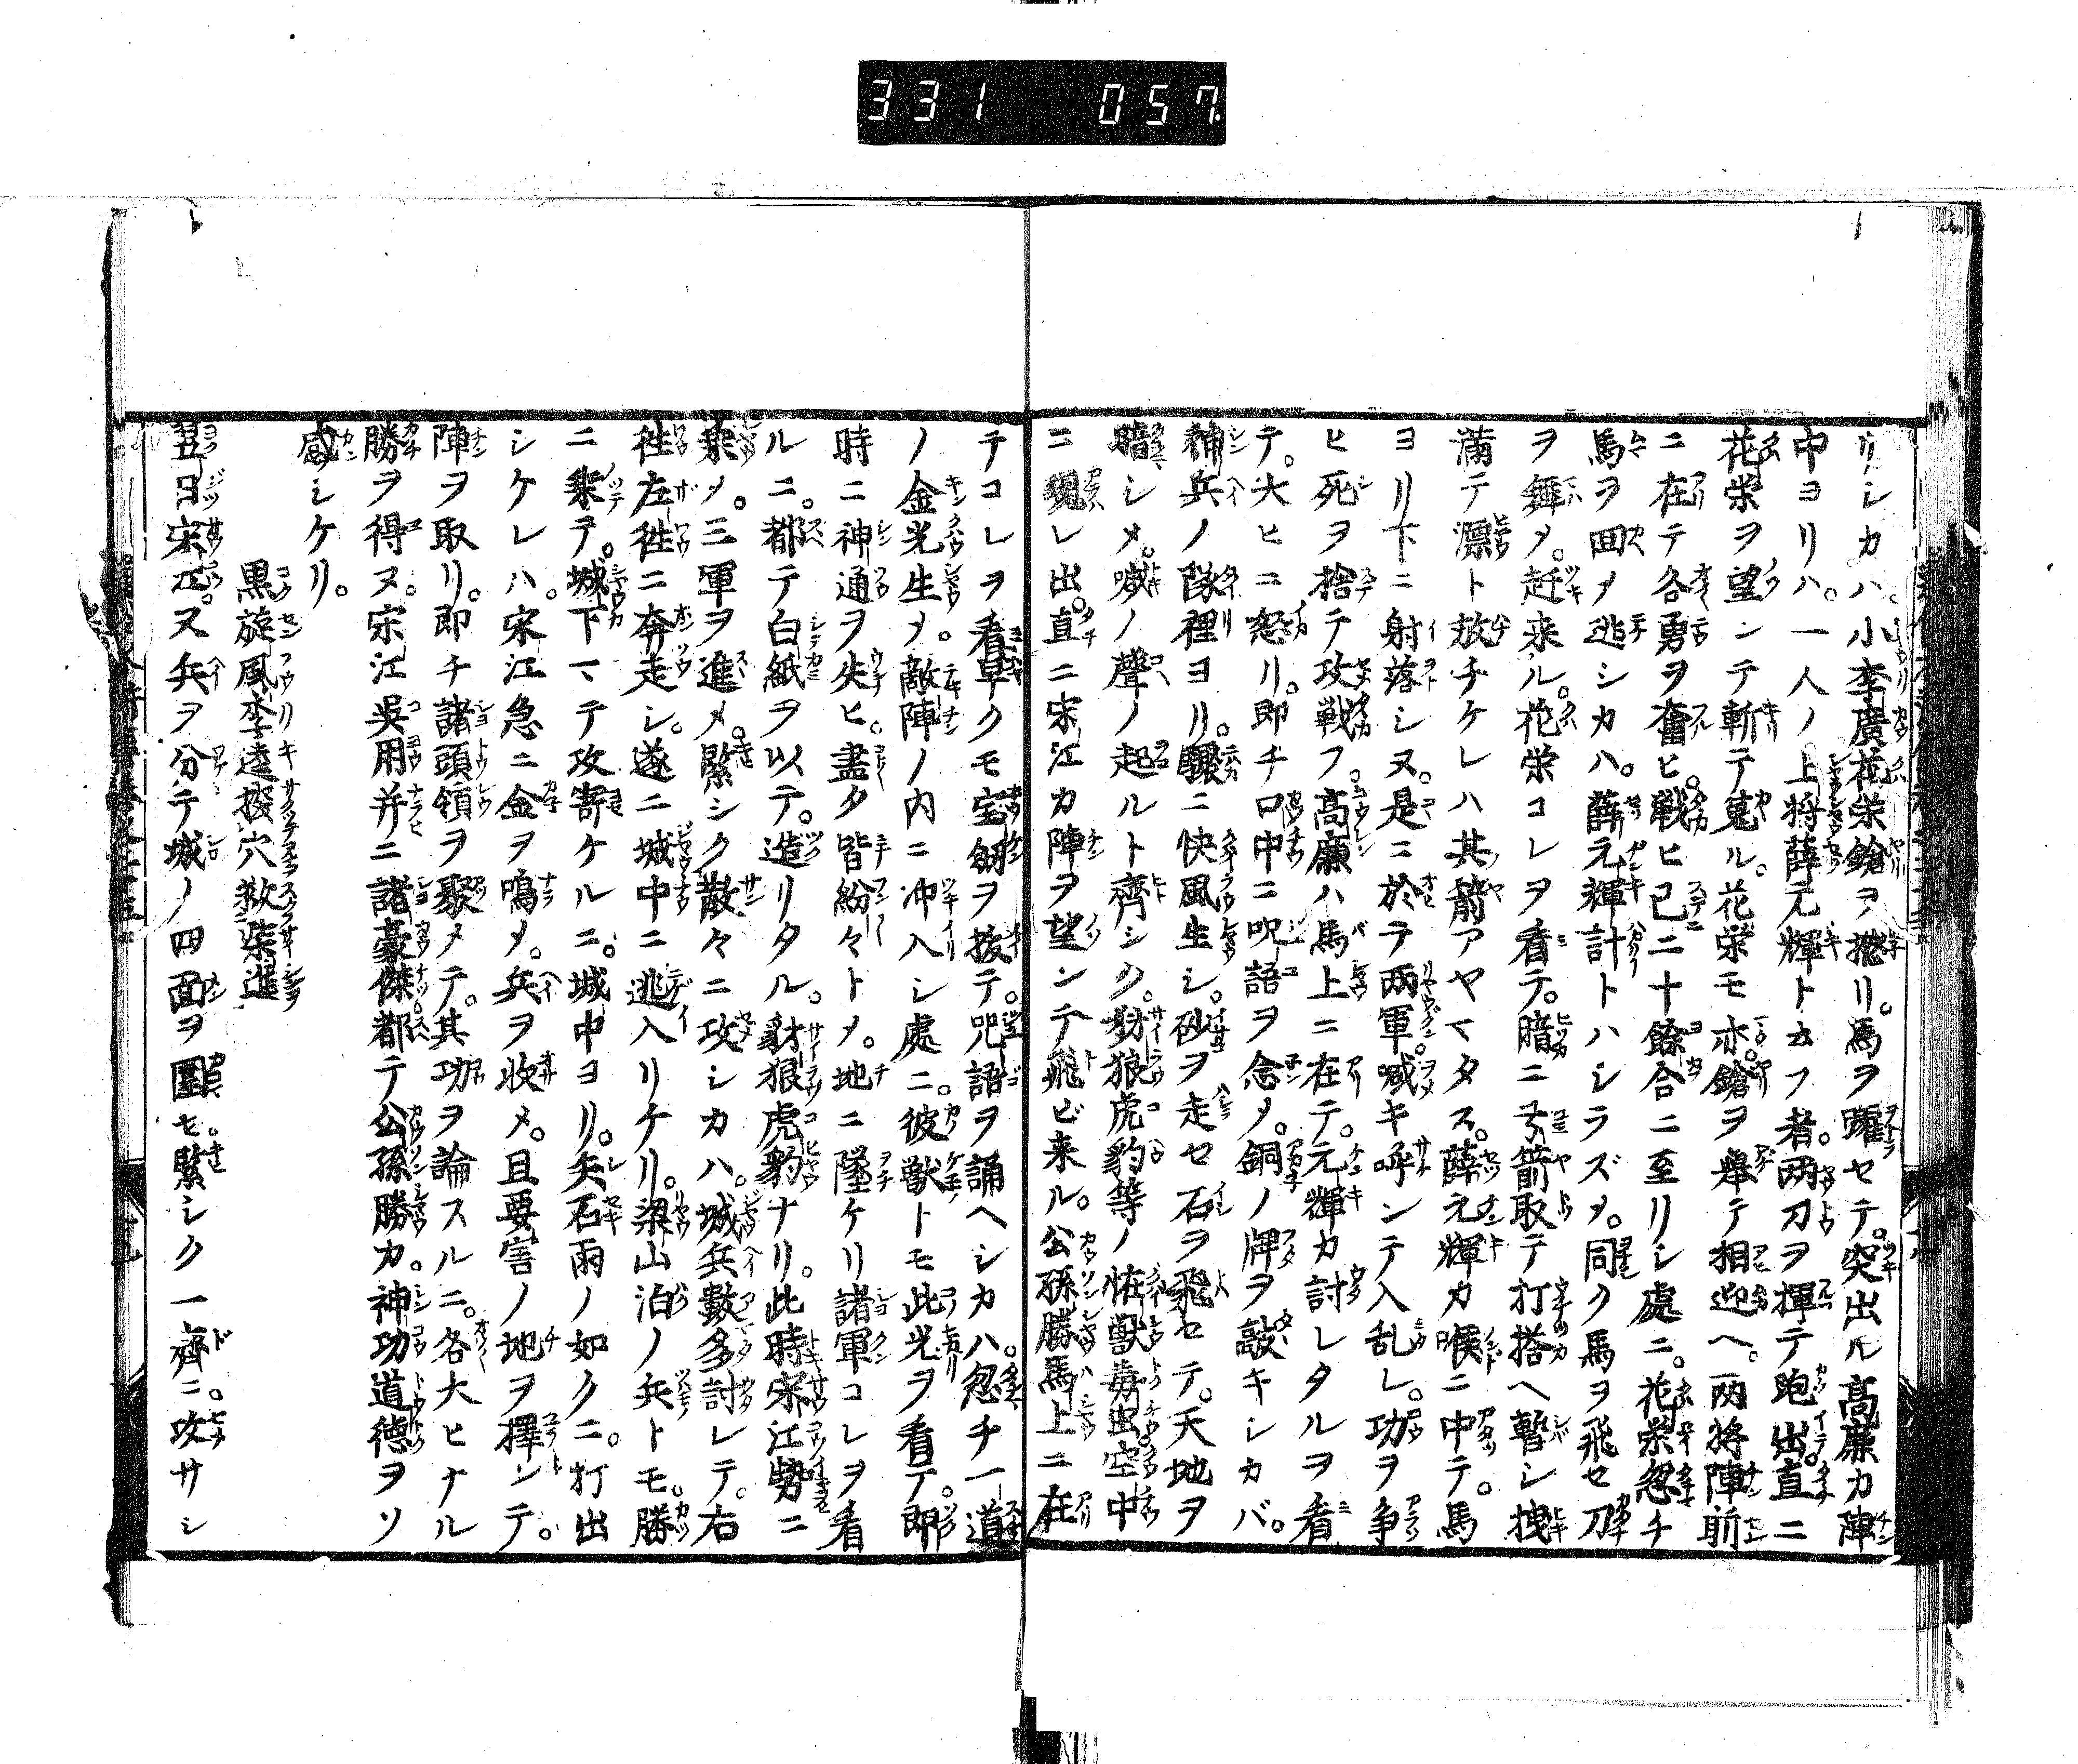 331 057
リシカハ。小李廣花栄鎗ヲ撚リ。馬ヲ躍セテ。突出ル高廉カ陣
中ヨリハ。一人ノ上将薛元輝ト云フ者。両刀ヲ揮テ跑出。直ニ
花栄ヲ望ンテ斬テ蒐ル。花栄モ亦。鎗ヲ舉テ相迎ヘ。両将陣前
ニ在テ各勇ヲ奮ヒ。戦ヒ已ニ十餘合ニ至リシ處ニ。花栄忽チ
馬ヲ回メ逃シカハ。薛元輝計トハシラズメ。同ク馬ヲ飛セ刀
ヲ舞メ。赶来ル。花栄コレヲ看テ。暗ニ弓箭取テ打搭ヘ暫シ拽
満テ漂ト放チケレハ其箭アヤマタス。薛元輝カ喉ニ中テ。馬
ヨリ下ニ射落シヌ。是ニ於テ両軍。喊キ呼ンテ入乱レ。功ヲ争
ヒ死ヲ捨テ攻戦フ。高廉ハ馬上ニ在テ。元輝カ討レタルヲ看
テ。大ヒニ怒リ。即チ口中ニ呪語ヲ念メ。銅ノ牌ヲ敲キシカバ。
神兵ノ隊裡ヨリ。驟ニ快風生シ。砂ヲ走セ石ヲ飛セテ。天地ヲ
暗シメ。喊ノ聲ノ起ルト齊シク。豺狼虎豹等ノ恠獣毒虫。空中
ニ現レ出。直ニ宋江カ陣ヲ望ンテ飛ビ来ル。公孫勝馬上ニ在
テコレヲ看早クモ宝劔ヲ抜テ。咒語ヲ誦ヘシカハ。忽チ一道
ノ金光生メ。敵陣ノ内ニ冲入シ處ニ。彼獣トモ此光ヲ看テ。即
時ニ神通ヲ失ヒ。盡ク皆紛々トメ。地ニ墜ケリ諸軍コレヲ看
ルニ。都テ白紙ヲ以テ。造リタル。豺狼虎豹ナリ。此時宋江勢ニ
乗メ。三軍ヲ進メ。緊シク散々ニ攻シカハ。城兵數多討レテ。右
徃左徃ニ奔走シ。遂ニ城中ニ逃入リケリ。梁山泊ノ兵トモ。勝
ニ乗テ。城下マテ攻寄ケルニ。城中ヨリ。矢石雨ノ如クニ。打出
シケレハ。宋江急ニ金ヲ鳴メ。兵ヲ收メ。且要害ノ地ヲ擇ンテ。
陣ヲ取リ。即チ諸頭領ヲ聚メテ。其功ヲ論スルニ。各大ヒナル
勝ヲ得ヌ。宋江吳用并ニ諸豪傑都テ公孫勝カ。神功道德ヲソ
感シケリ。
黒旋風李逵探穴救柴進
翌日宋江。又兵ヲ分テ城ノ四面ヲ圍セ緊シク一齊ニ。攻サシ